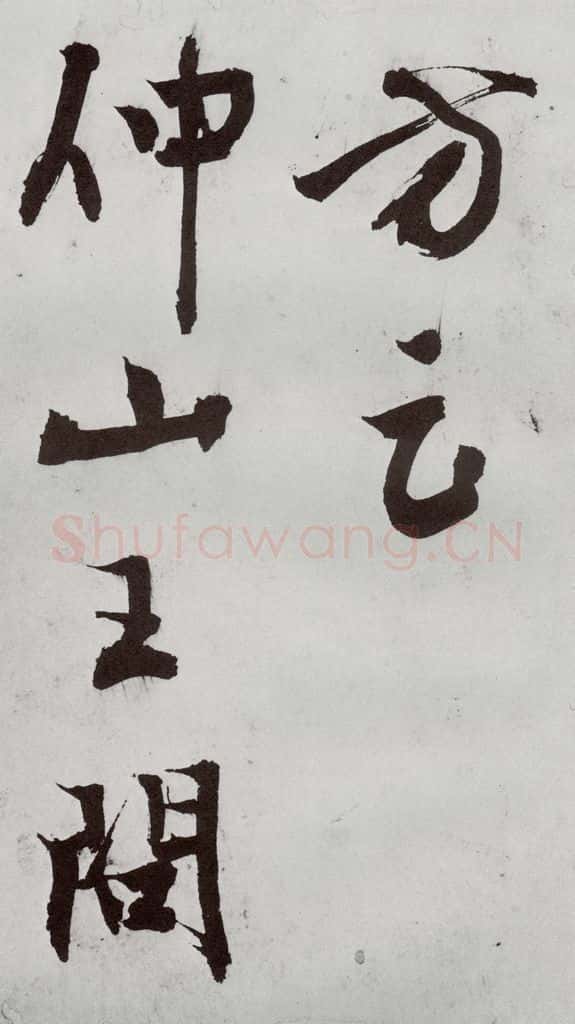 方之
仲山王問
Shufawang.CN